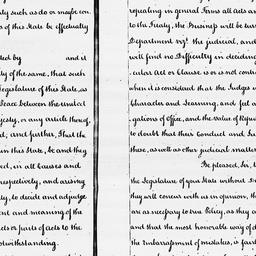 ty such as do or may con
of this State be effectually
ted by and it
ty of the same, that such
Legislature of this State, as
Peace between the United
jesty, or any article thereof,
ed, and further, that the
in this State, be and they
ed, in all Causes and
respectively, and arising
ty, to decide and adjudge
ent and meaning of the
cts or parts of acts to the
notwithstanding.
repealing in general Terms all acts and
to the Treaty, the Business will be turn
Department vizt. the judicial, and
will find no Difficulty in deciding
cular Act or Clause is or is not contr
when it is considered that the Judges in
Character and Learning, and feel a
gations of office, and the value of Reput
to doubt that their Conduct and Ju
these, as well as other judicial matters
Be pleased, Sir, to
the Legislature of your State without De
they will concur with us in opinion, th
are as necessary to true Policy, as they a
and that the most honorable way of d
the Embarrassment of mistakes, is fairly